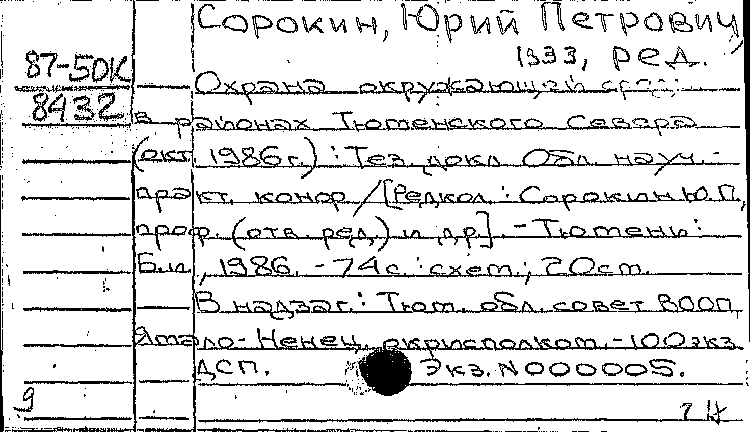 Сорокин, Юрий Петрович,
1933, ред.
87-5ДК
8432
Охрана окружающей среды
в районах Тюменского Севера
(окт. 1986г.) : Тез. докл. Обл. науч.-
практ. конф. / [Редкол.: Сорокин Ю.П.,
проф. (отв. ред.) и др.]. - Тюмень:
Б.и., 1986. - 74с. : схем.; 20см.
В надзаг.: Тюм. обл. совет ВООП,
Ямало-Ненец. окрисполком. - 100экз.
ДСП. Экз. N000005.
9